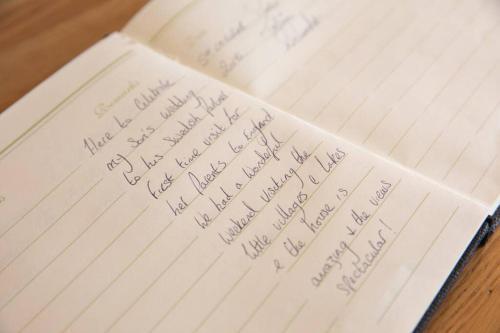 Comments
Here to celebrate
my son's wedding
to his Swedish
First time visit for
her Parents to England
We had a wonderful
weekend visiting the
little villages & lakes
& the house is
amazing & the views
spectacular!